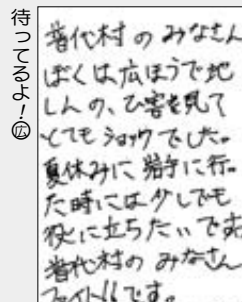 待ってるよ！広
普代村のみなさん
ぼくは、広ほうで地
しんの、ひ害を見て
とてもショックでした。
夏休みに岩手に行っ
た時には少しでも
役に立ちたいです
普代村のみなさん
ファイト!!です。